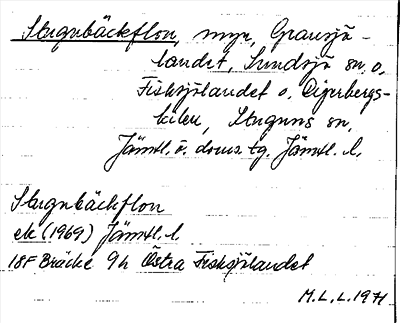 Stugubäckflon, myr, Gransjö-
landet, Sundsjö sn, o.
Fisksjölandet o. Digerbergs-
kilen, Stuguns sn,
Jämtl. ö. doms. tg. Jämtl. l.
Stugubäckflon
ek (1969) Jämtl. l.
18F Bräcke 9h Östra Fisksjölandet
M.L.L. 1971